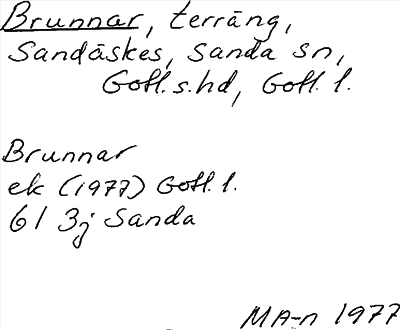 Brunnar, terräng,
Sandäskes, Sanda sn,
Gotl. s. hd, Gotl. l.
Brunnar
ek (1977) Gotl. l.
6I 3j Sanda
MA-n 1977